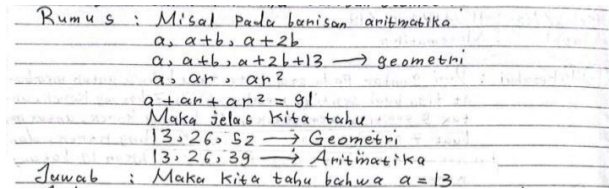 Rumus : Misal Pada barisan aritmatika
a, a+b, a+2b
a, a+b, a+2b+13 → geometri
a, ar, ar²
a + ar + ar² = 91
Maka jelas kita tahu
13, 26, 52 → Geometri
13, 26, 39 → Aritmatika
Jawab : Maka kita tahu bahwa a = 13